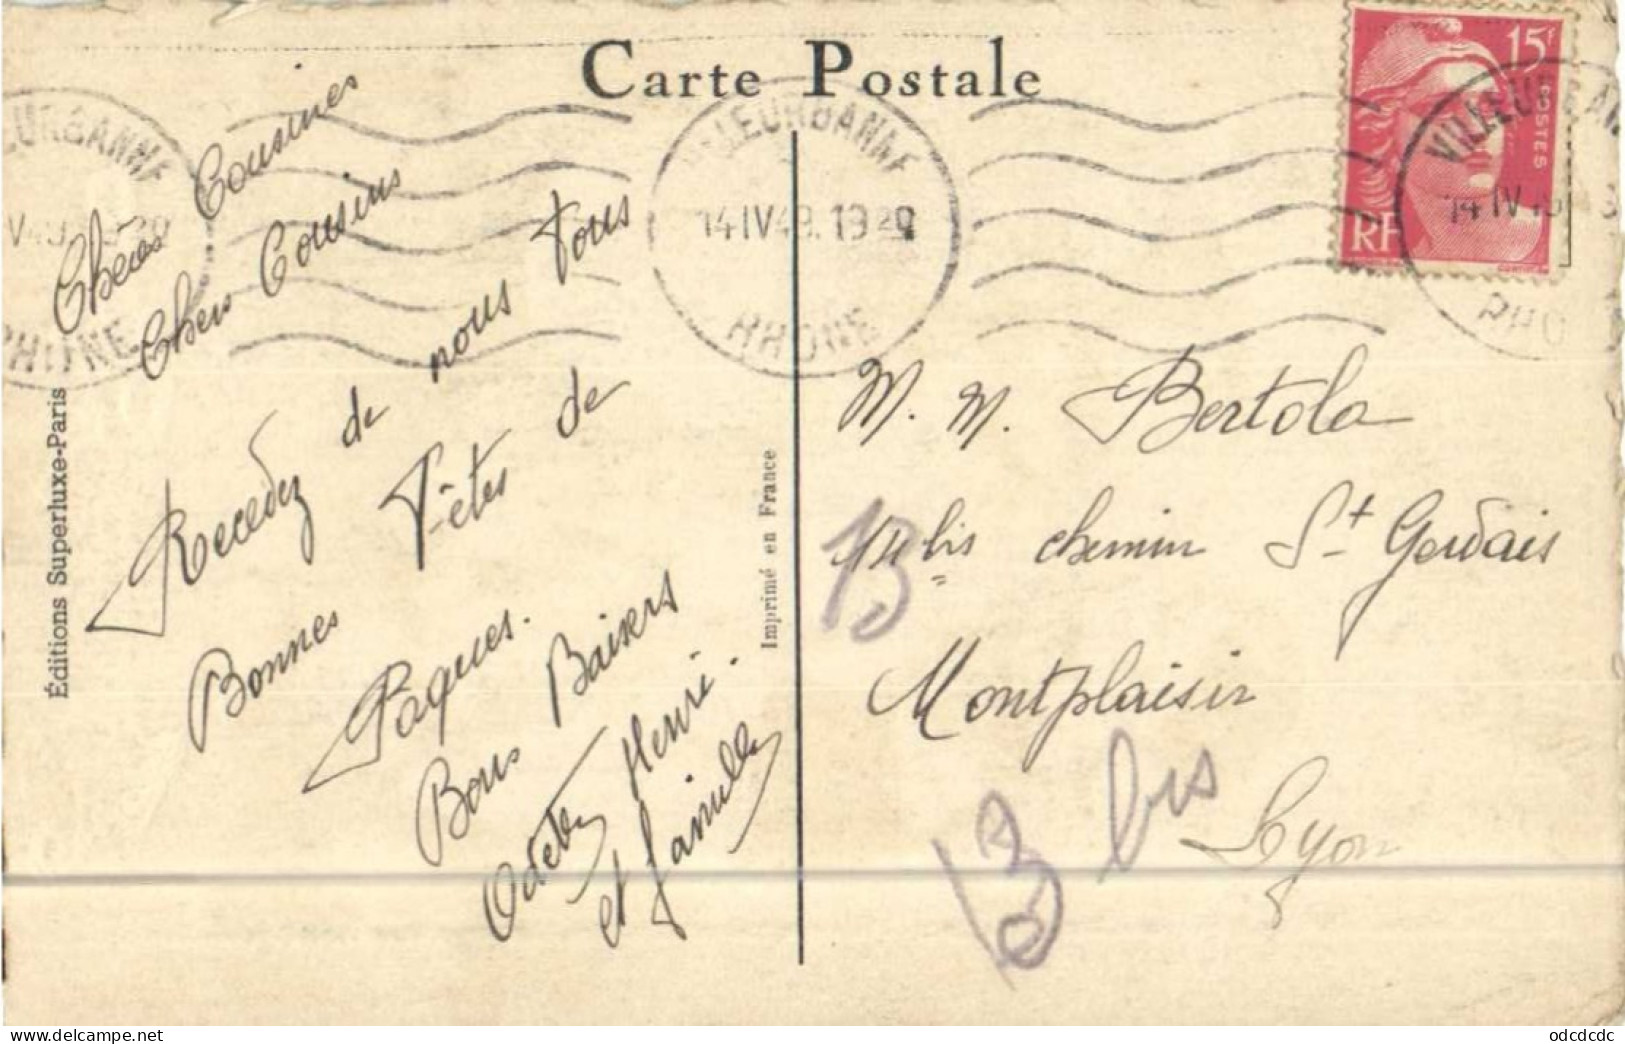 Carte Postale
15F
POSTES
RF
VILLEURBANNE
14 IV 49. 19 20
RHONE
Chères Cousines
Chers Cousins
Recevez de nous tous
Bonnes Fêtes de
Pâques.
Bons Baisers
Odette Henri.
et famille
Éditions Superluxe-Paris
Imprimé en France
M. M. Bertola
bis chemin St Gervais
Montplaisir
Lyon
13
13 bis
odcdcdc